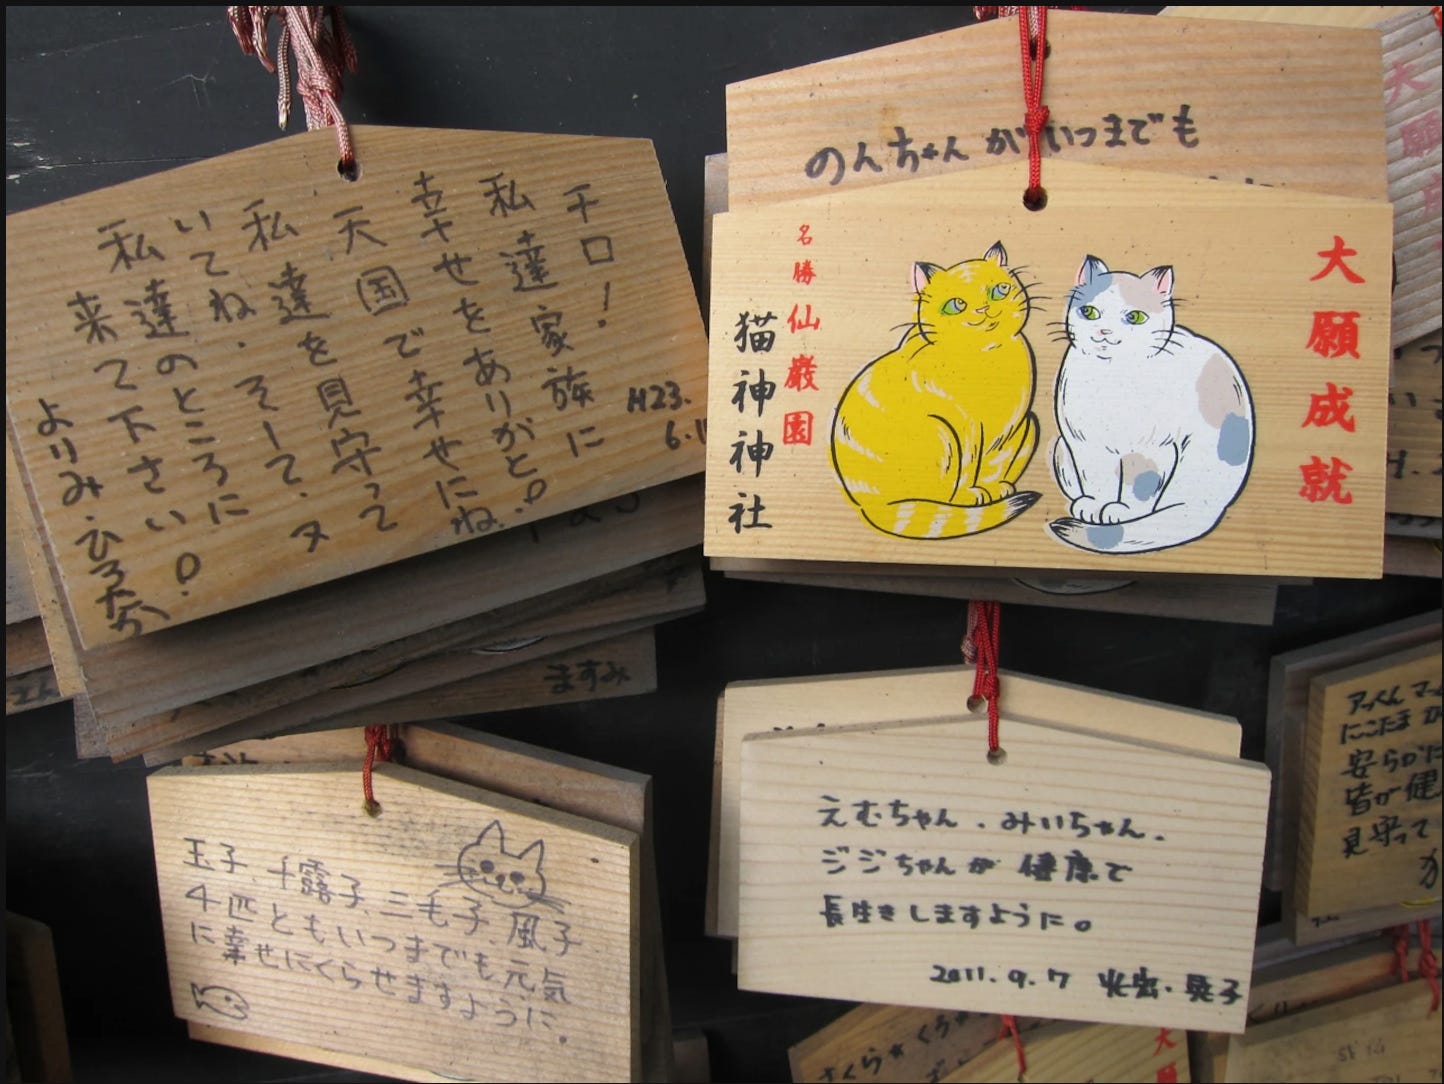 チロ!
私達家族に
幸せをありがと!
天国で幸せにね。
私達を見守って
いてね。そして、又
私達のところに
来て下さい!
より
H23.
6.1
ますみ
のんちゃんがいつまでも
大願成就
名勝仙巌園
猫神神社
玉子、千露子、三毛子、風子
4匹ともいつまでも元気
に幸せにくらせますように。
えむちゃん、みいちゃん、
ジジちゃんが健康で
長生きしますように。
2011.9.7
アッペん マー
にこたま が
安らかに
皆が健
見守って
さくら☆くう
大願